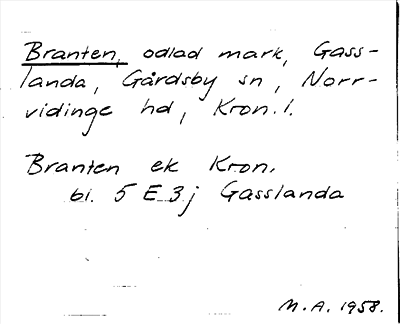 Branten, odlad mark, Gass-
landa, Gårdsby sn, Norr-
vidinge hd, Kron. l.
Branten ek Kron.
bl. 5 E 3j Gasslanda
M.A. 1958.